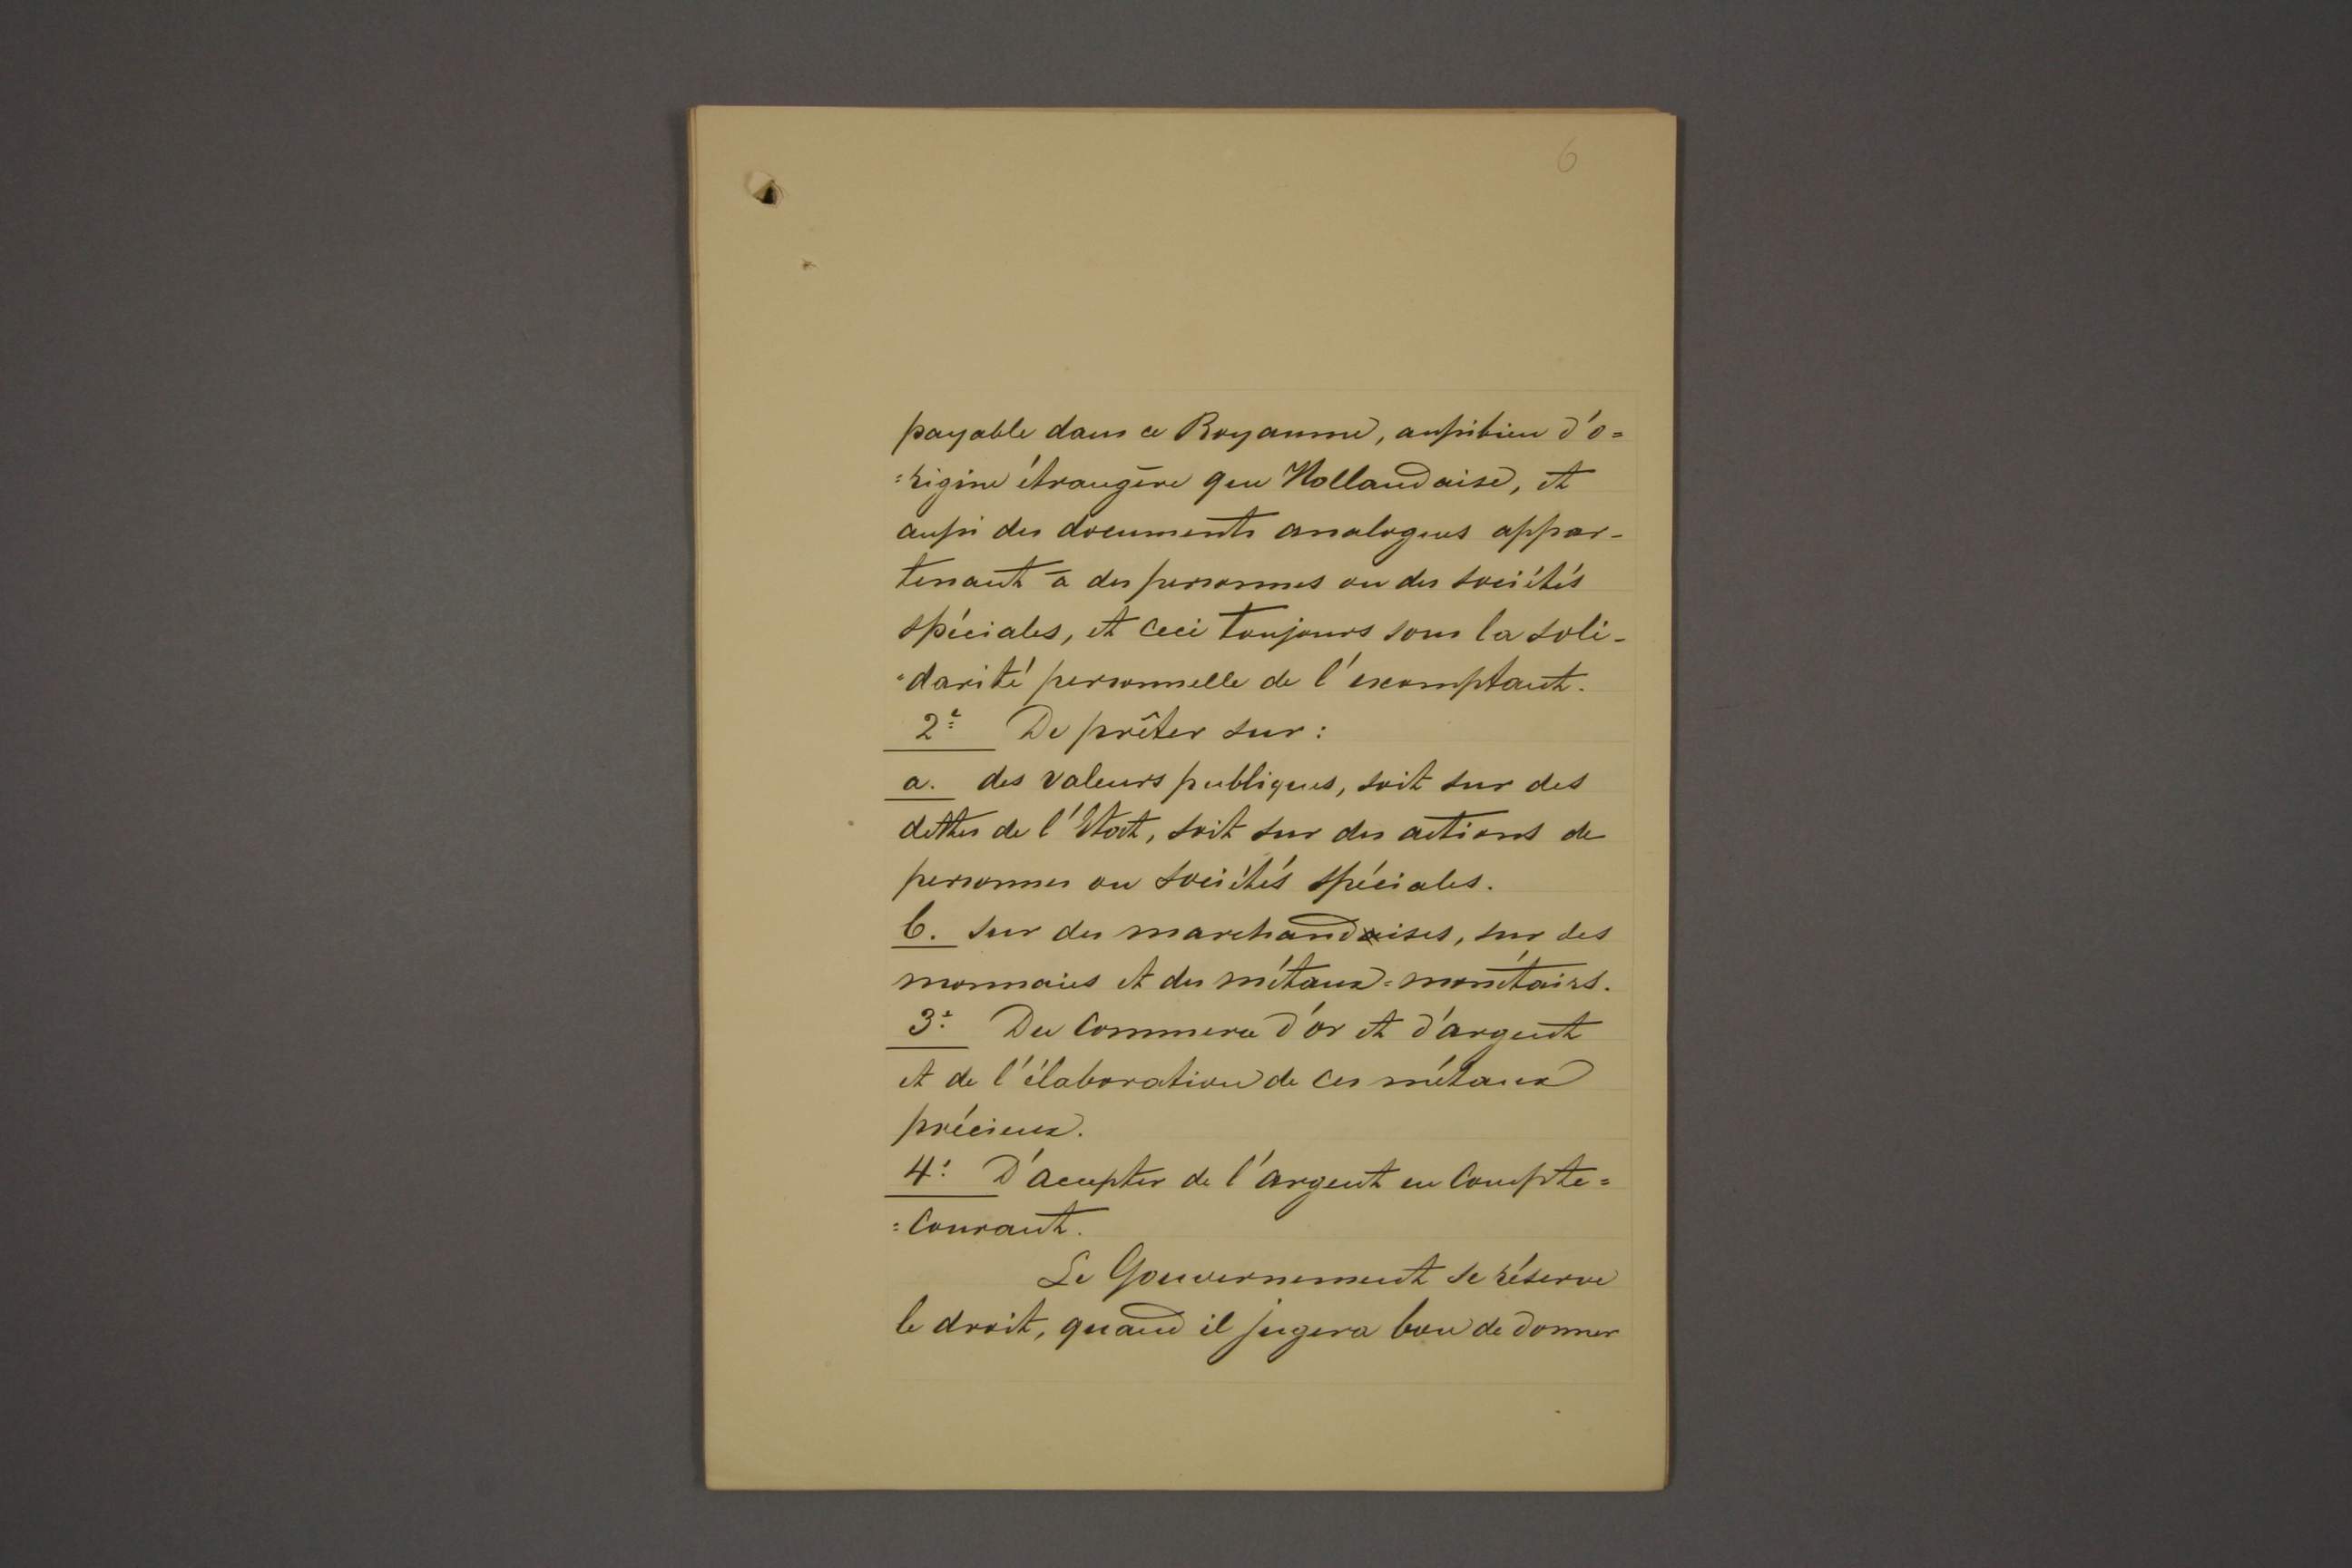 6
payable dans ce Royaume, aussibien d'o=
=rigine étrangère que Hollandaise, et
aussi des documents analogues appar-
tenant à des personnes ou des sociétés
spéciales, et ceci toujours sous la soli-
"darité personnelle de l'escomptant.
2e De prêter sur :
a. des valeurs publiques, soit sur des
dettes de l'Etat, soit sur des actions de
personnes ou sociétés spéciales.
b. sur des marchandises, sur des
monnaies et des métaux=monétairs.
3e Du Commerce d'or et d'argent
et de l'élaboration de ces métaux
précieux.
4e D'accepter de l'argent en Compte=
=Courant.
Le Gouvernement se réserve
le droit, quand il jugera bon de donner